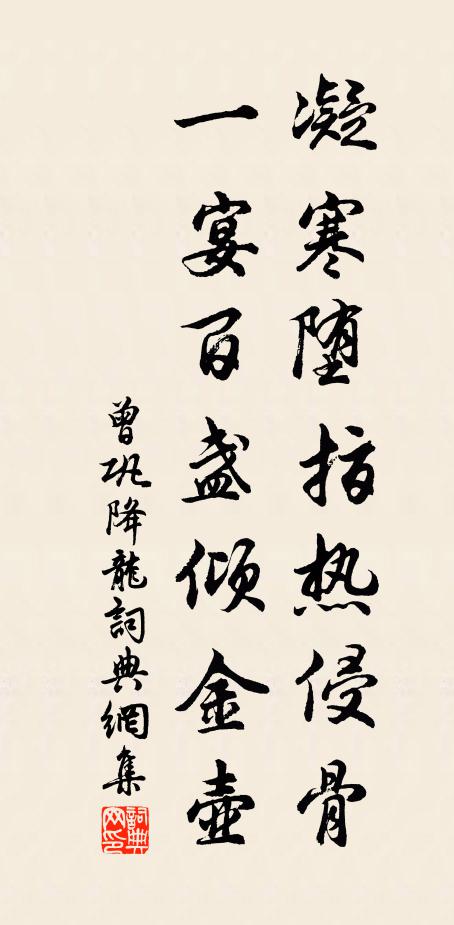 凝寒堕指热侵骨
一宴百盏倾金壶
曾巩降龍詞典網集
詞典网印